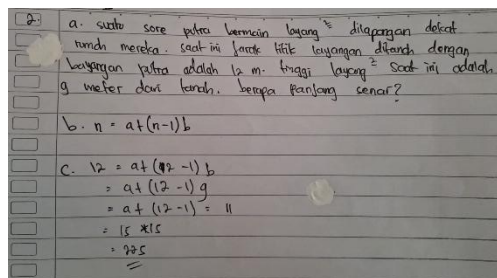 2. a. suatu sore putra bermain layang² dilapangan dekat
rumah mereka. saat ini jarak titik layangan ditanah dengan
bayangan putra adalah 12 m. tinggi layang² saat ini adalah
9 meter dari tanah. berapa panjang senar?
b. n = at(n-1)b
c. 12 = at(12-1)b
= at(12-1)9
= at(12-1) = 11
= 15 * 15
= 225